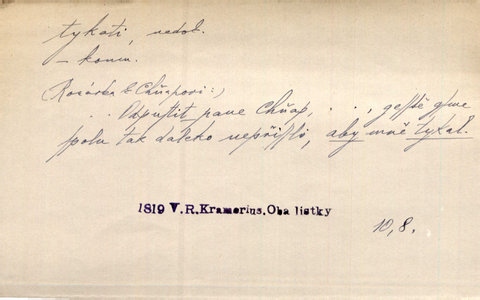 tykati, nedok.
– komu.
(Rozárka k Chňapovi:)
... Odpustit pane Chňap, . . , gesstě gsme
spolu tak daleko nepřissli, aby mně tykal.
1819 V.R.Kramerius.Oba listky
10, 8.